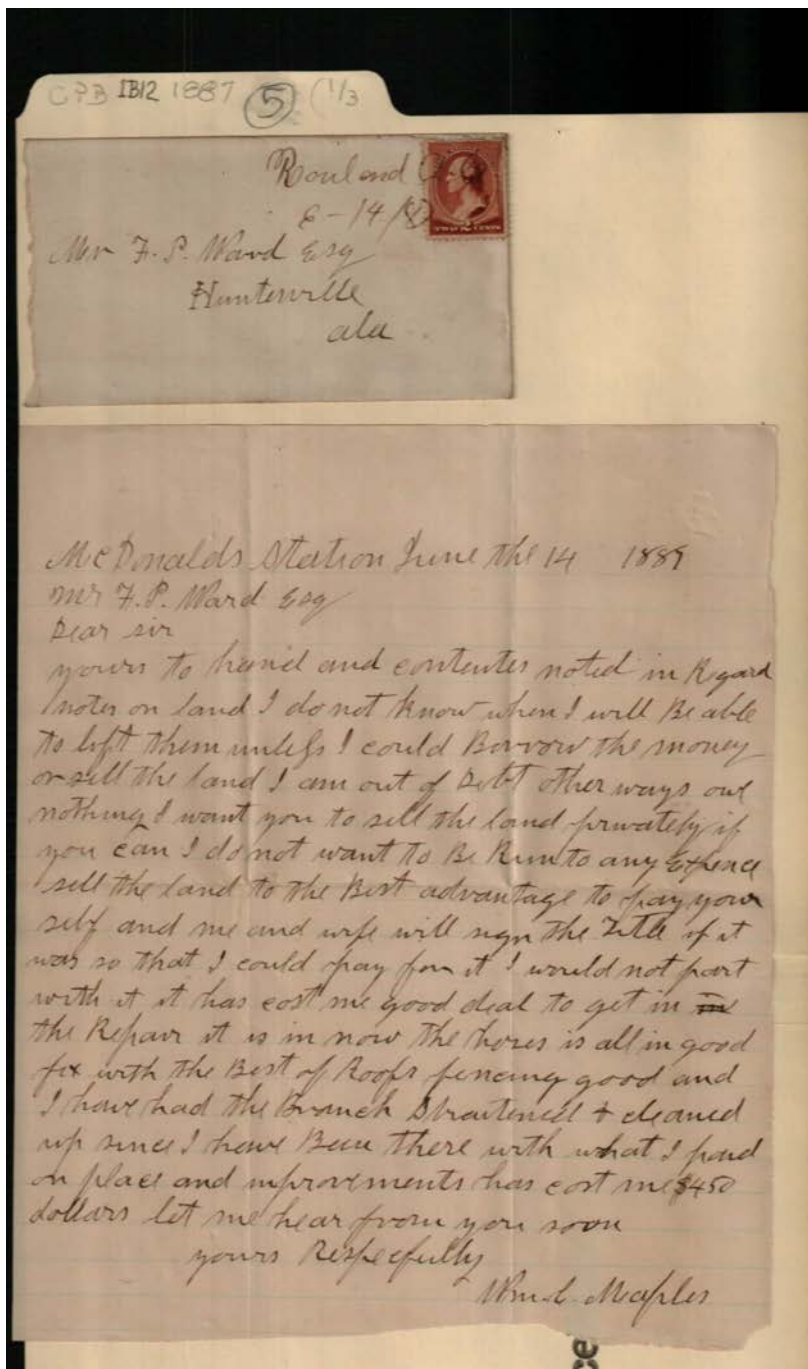 CPB IB12 1887 5 (1/3
Rowland
6-14/8
TWO CENTS
Mr F. P. Ward Esq
Huntersville
ala
McDonalds Station June the 14 1889
Mr F. P. Ward Esq
Dear sir
yours to hand and contentes noted in Regard
notes on land I do not know when I will Be able
to lift them unless I could Borrow the money
or sell the land I am out of Debt other ways owe
nothing I want you to sell the land privately if
you can I do not want to Be Run to any Expence
sell the land to the Best advantage to pay your
self and me and wife will sign the Title if it
was so that I could pay for it I would not part
with it it has cost me good deal to get in in
the Repair it is in now the houes is all in good
fix with the Best of Roofs fencing good and
I have had the Branch Straitened & cleaned
up since I have Been there with what I paid
on place and improvements has cost me $450
dollars let me hear from you soon
yours Respecfully
Wm C. Maples
ce